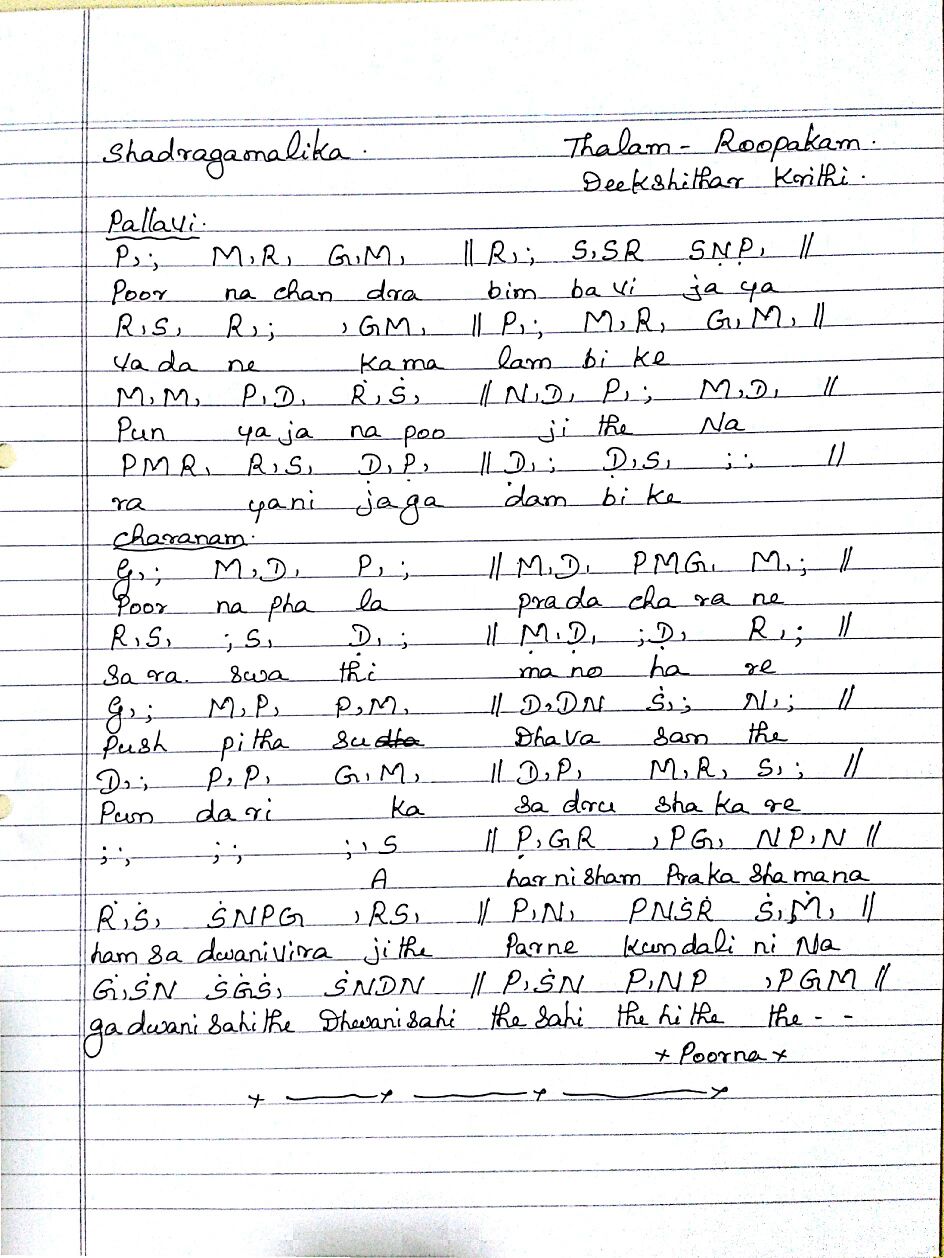 Shadragamalika.
Thalam - Roopakam.
Deekshithar Krithi.
Pallavi.
P,; M,R, G,M, || R,; S,SR SṆP̣, ||
Poor na chan dra bim ba vi ja ya
R,S, R,; ,GM, || P,; M,R, G,M, ||
va da ne kama lam bi ke
M,M, P,D, Ṙ,Ṡ, || N,D, P,; M,D, ||
Pun ya ja na poo ji the Na
PMR, R,S, Ḍ,P̣, || Ḍ,; Ḍ,S, ;; ||
ra yani jaga dam bi ke
charanam.
G,; M,D, P,; || M,D, PMG, M,; ||
Poor na pha la prada cha ra ne
R,S, ;S, Ḍ,; || Ṃ,Ḍ, ;Ḍ, R,; ||
Sa ra. swa thi ma no ha re
G,; M,P, P,M, || D,DN Ṡ,; N,; ||
Push pi tha su dha Dhava sam the
D,; P,P, G,M, || D,P, M,R, S,; ||
Pun da ri ka sa dru sha ka re
;; ;; ;,S || P̣,GR ,PG, NP,N ||
A har ni sham Praka shamana
Ṙ,Ṡ, ṠNPG ,RS, || P,N, PNṠṘ Ṡ,Ṁ, ||
ham sa dwanivira jithe Parne kundali ni Na
Ġ,ṠN ṠĠṠ, ṠNDN || P,ṠN P,NP ,PGM ||
ga dwani sahithe Dhwani sahi the sahi the hi the the - -
x Poorna x